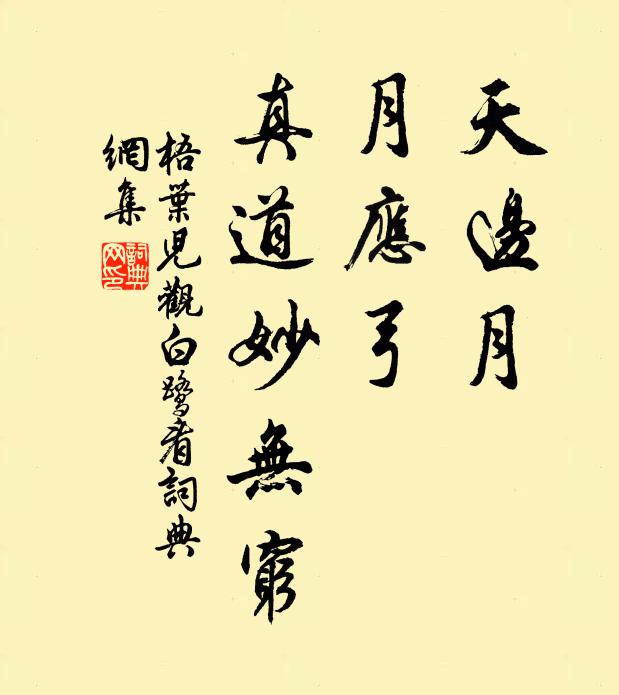 天邊月
月應弓
真道妙無窮
梧葉兒觀白鹭者詞典
網集
詞典
网印